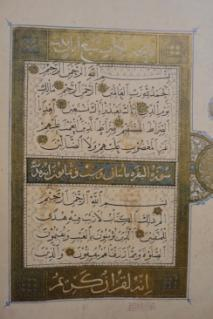 بسم الله الرحمن الرحيم
الحمد لله رب العالمين الرحمن الرحيم
ملك يوم الدين إياك نعبد وإياك نستعين اهدنا
الصراط المستقيم صراط الذين أنعمت عليهم
غير المغضوب عليهم ولا الضالين
سورة البقرة مائتان وست وثمانون آية
بسم الله الرحمن الرحيم
الم ذلك الكتاب لا ريب فيه هدى
للمتقين الذين يؤمنون بالغيب ويقيمون
الصلوة ومما رزقناهم ينفقون والذين
إنه لقرآن كريم